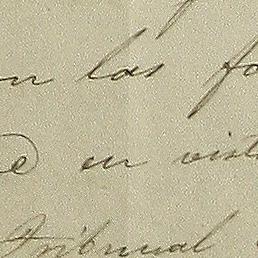 en las fo
de en vist
Tribunal